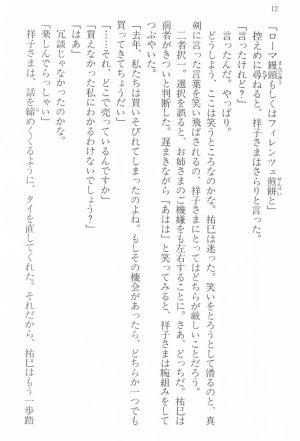 12
「ローマ饅頭もしくはフィレンツェ煎餅と」
控えめに尋ねると、祥子さまはさらりと言った。
「言ったけれど?」
言ったんだ。やっぱり。
どうしよう、ここは笑うところなのかな。祐巳は迷った。笑いをとろうとして滑るのと、真
剣に言った言葉を笑い飛ばされるのと、祥子さまにとってはどちらが厳しいことだろう。
二者択一。選択を誤ると、お姉さまのご機嫌をも左右することに。さあ、どっちだ。祐巳は
前者がきついと判断した。遅まきながら「あはは」と笑ってみると、祥子さまは腕組みして
つぶやいた。
「去年、私たちは買いそびれてしまったのよね。もしその機会があったら、どちらか一つでも
買ってきてちょうだい」
「……それ、どこで売っているんですか」
「買えなかった私にわかるわけないでしょう?」
「はあ」
冗談じゃなかったのかな。
「楽しんでらっしゃい」
祥子さまは、話を締めくくるように、タイを直してくれた。それだから、祐巳はもう一歩踏